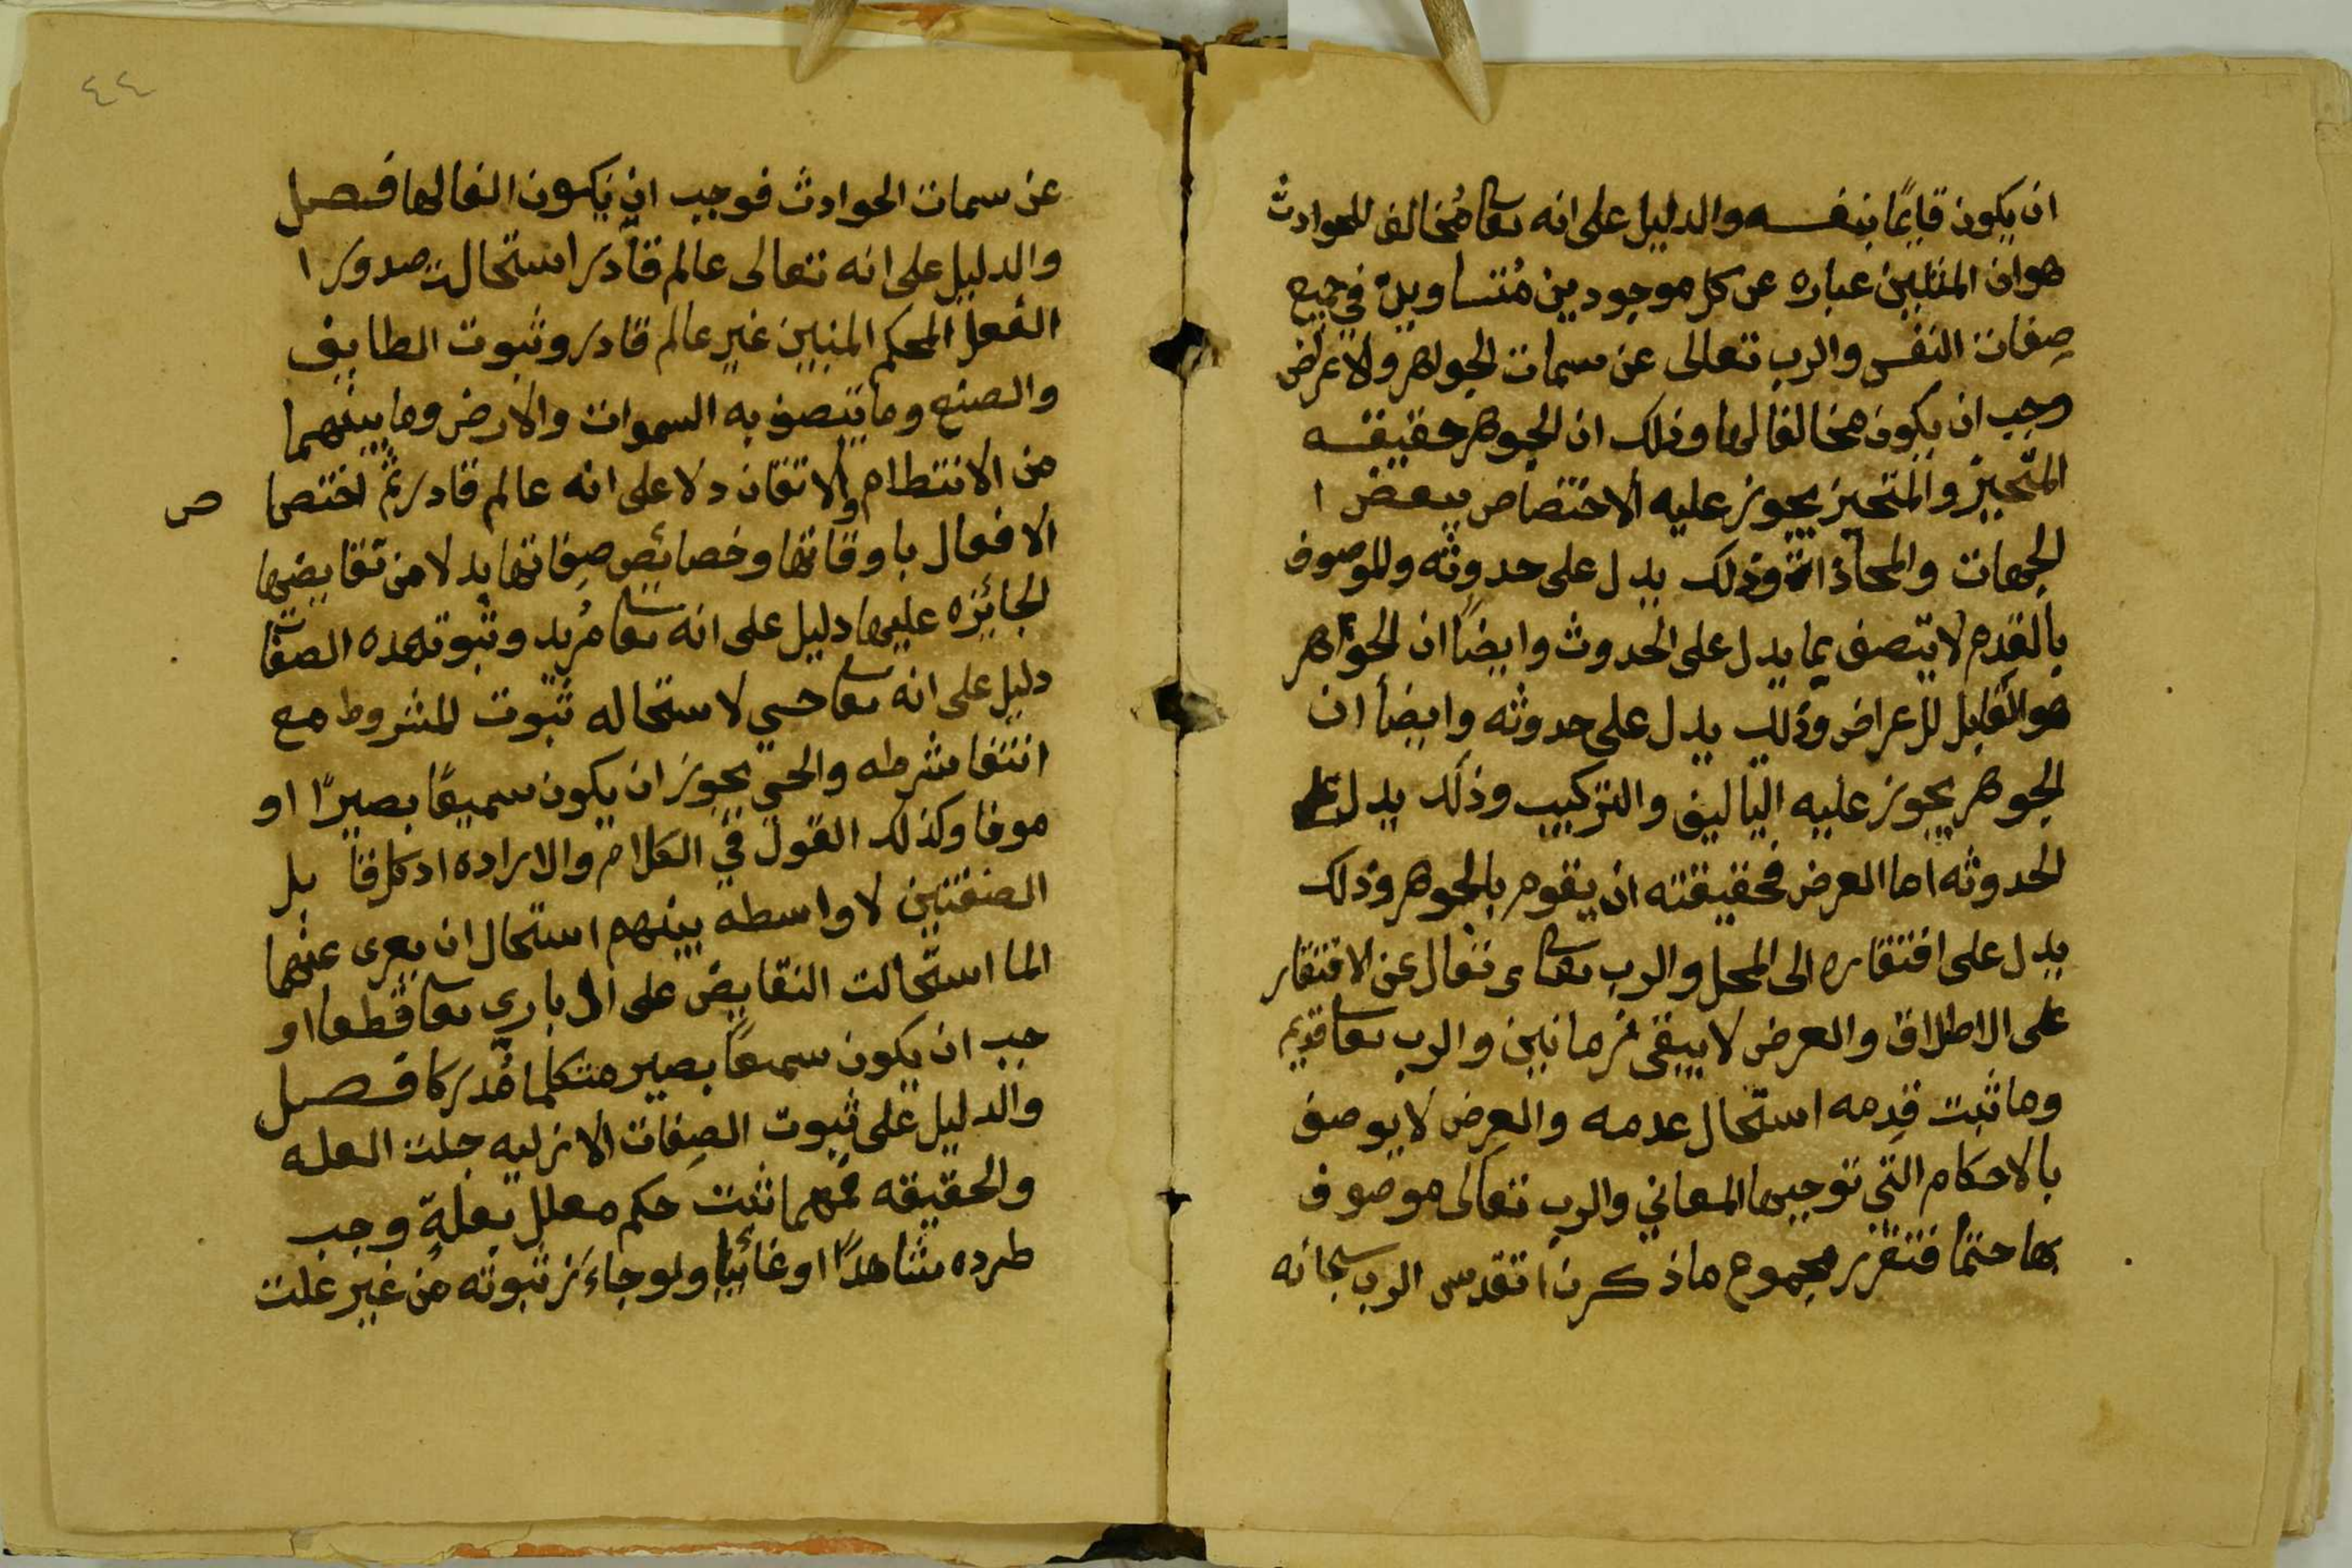 ان يكون قايمًا بنفسه والدليل على انه تعا مُخالف للحوادث
هو ان المثلين عباره عن كل موجودين مُتساويين في جميع
صِفات النفس والرب تعالى عن سمات الجواهر والاعراض
وجب ان يكون مخالفا لها وذلك ان الجوهر حقيقته
المتحيز والمتحيز يجوز عليه الاختصاص ببعض ا
لجهات والمحاذات وذلك يدل على حدوثه والموصوف
بالقِدم لا يتصف بما يدل على الحدوث وايضًا ان الجواهر
هو القابل للاعراض وذلك يدل على حدوثه وايضا ان
الجوهر يجوز عليه التاليف والتركيب وذلك يدل على
الحدوثه اما العرض فحقيقته ان يقوم بالجوهر وذلك
يدل على افتقاره الى المحل والرب تعا تعال عن الافتقار
على الاطلاق والعرض لا يبقى زمانين والرب تعا قديم
وما ثبت قِدمه استحال عدمه والعرض لا يوصف
بالاحكام التي توجبها المعاني والرب تعالى موصوف
بها حتمًا فتقرر مجموع ما ذكرنا تقدس الرب سبحانه
٤٤
عن سمات الحوادث فوجب ان يكون الفالها فصل
والدليل على انه تعالى عالم قادر استحالت صدور ا
الفعل المحكم المبين غير عالم قادر وثبوت الطايف
والصنع وما يتصف به السموات والارض وما بينهما
من الانتظام والاتقان دلا على انه عالم قادر ثم اختصا
ص
الافعال باوقاتها وخصائص صِفاتها بدلا من نقايضها
الجائزه عليها دليل على انه تعا مُريد وثبوت هده الصفات
دليل على انه تعا حي لاستحاله ثبوت المشروط مع
انتفا شرطه والحي يجوز ان يكون سميعًا بصيرًا او
موفا وكذلك القول في الكلام والاراده اد كل قا بل
الصفتين لا واسطه بينهم استحال ان يعرى عنهما
الما استحالت النقايض على الباري تعا قطعا او
جب ان يكون سمعًا بصير متكلما مُدركا فصل
والدليل على ثبوت الصِفات الازليه جلت العله
والحقيقه فمهما ثبت حكم معلل بعلةٍ وجب
طرده شاهدًا او غائبًا ولو جاءز ثبوته من غير علت